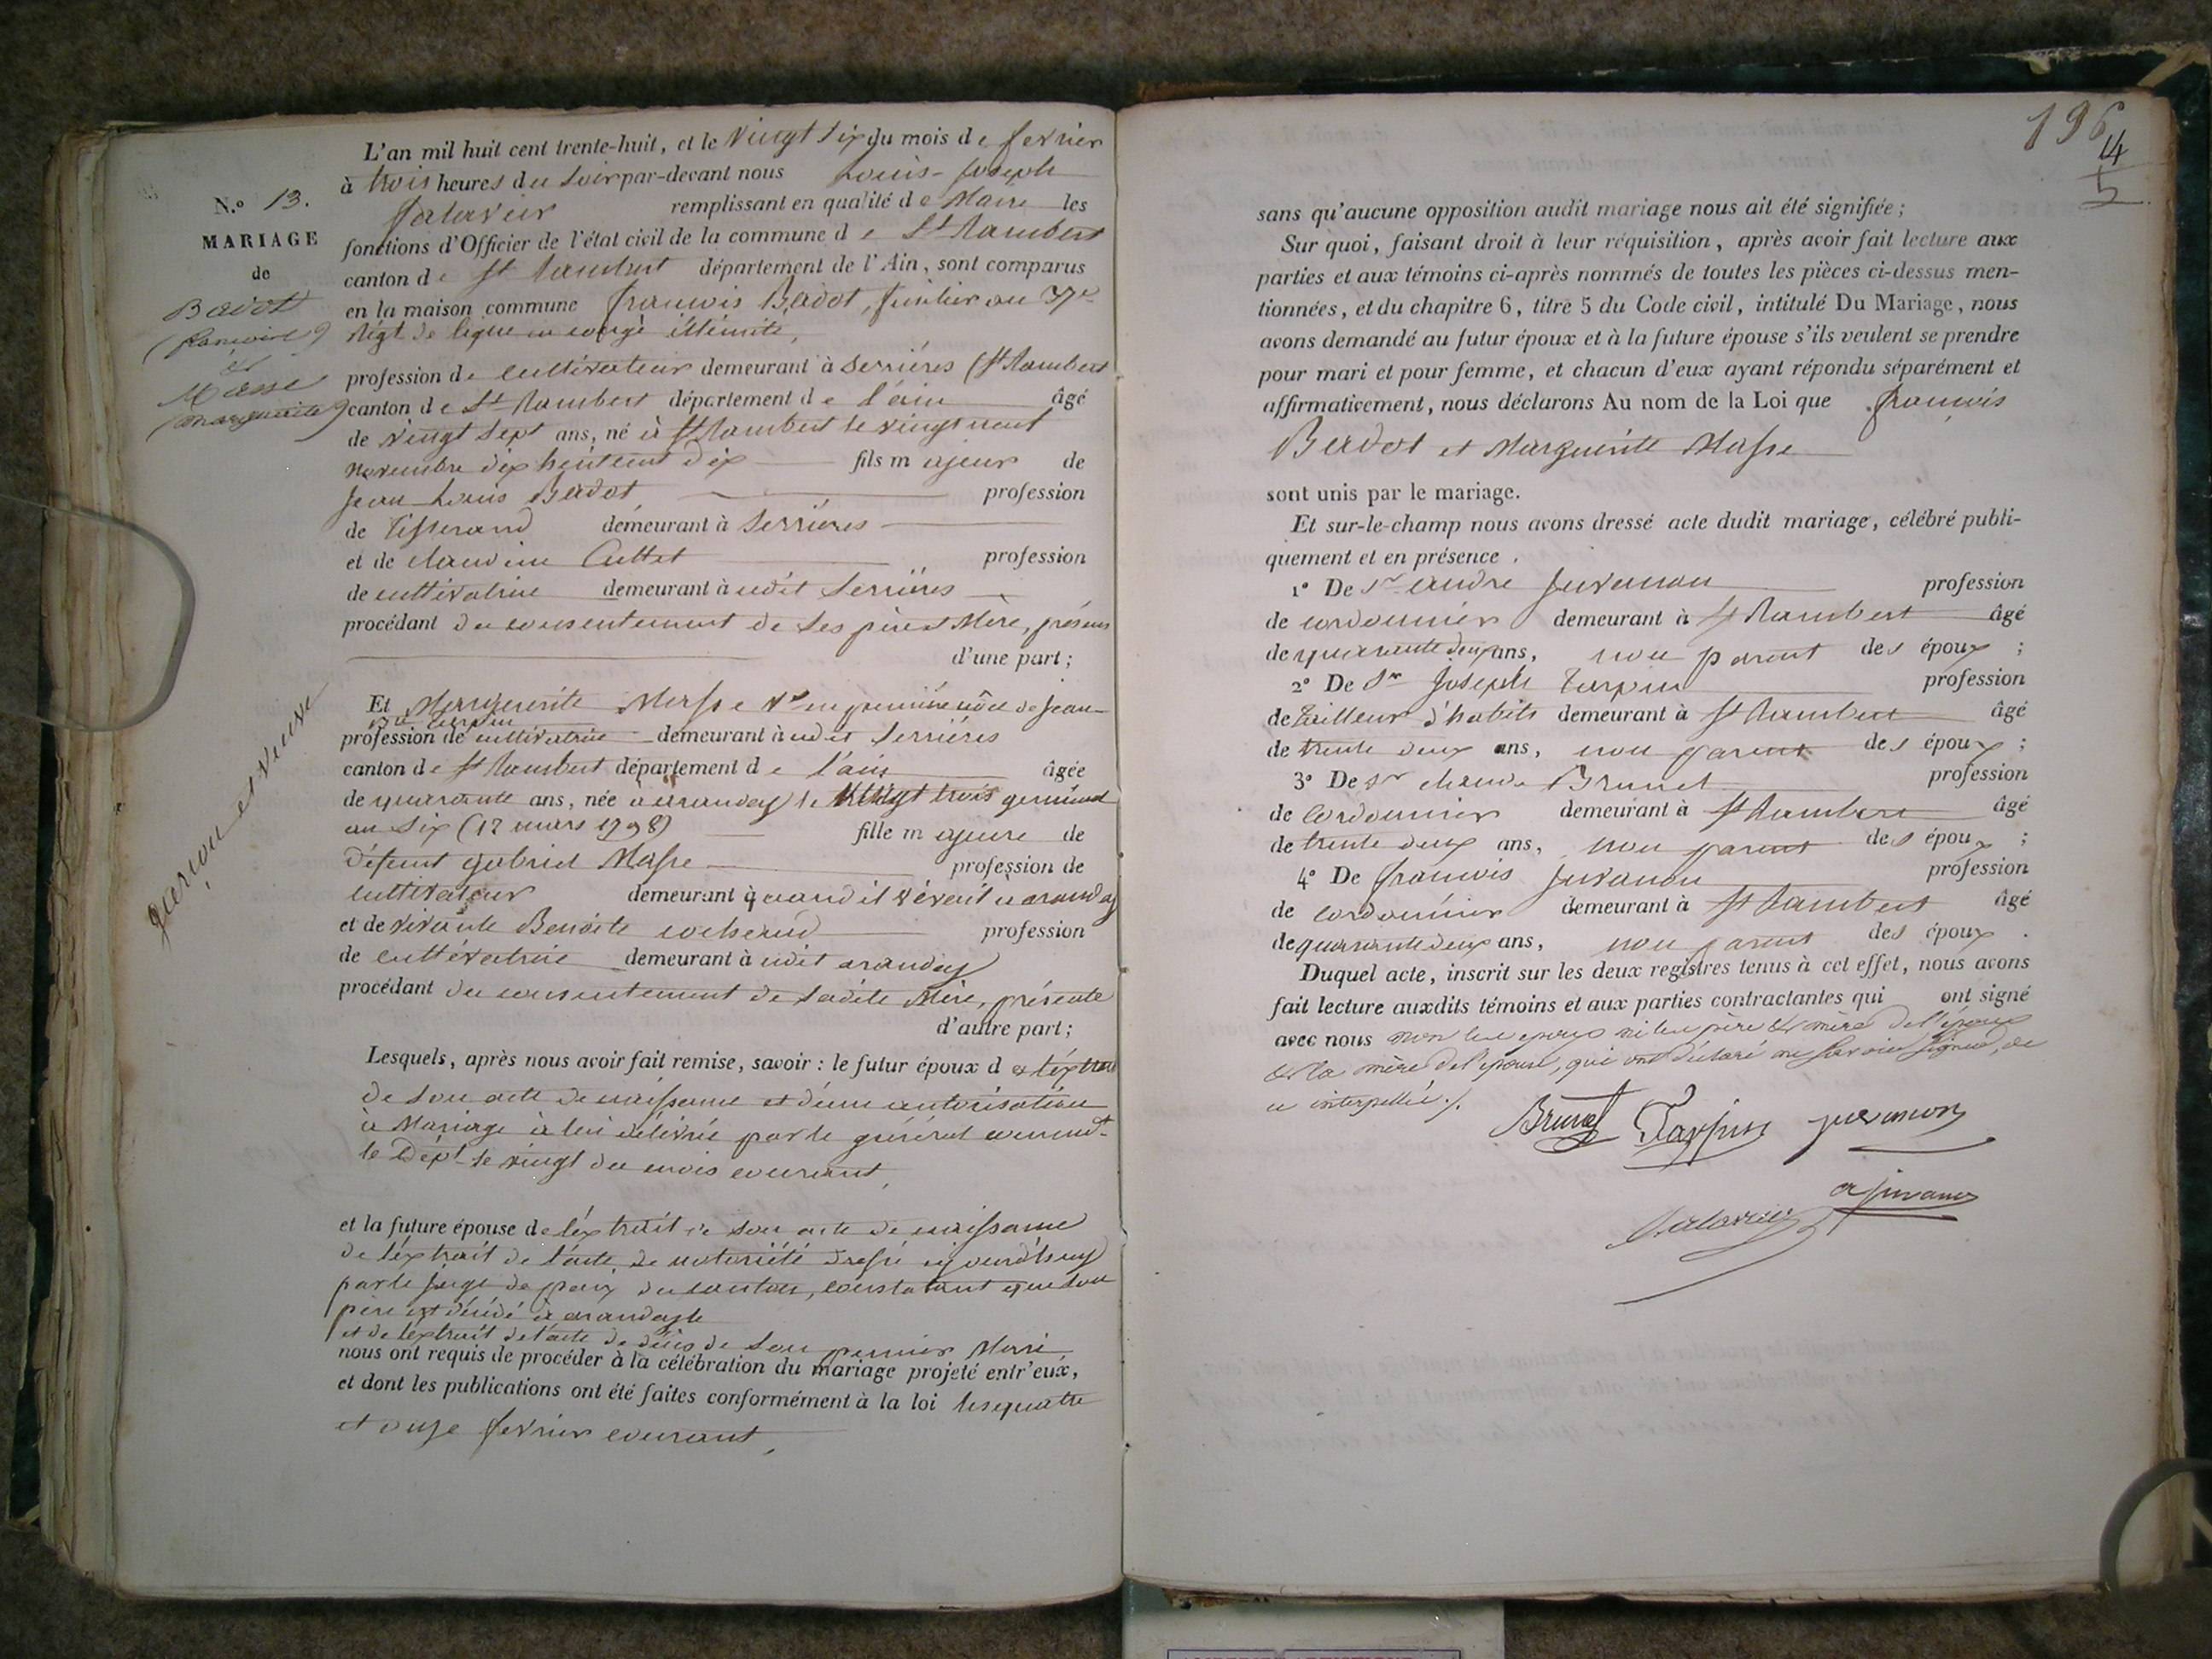 N.o 13.
MARIAGE
de
Badot
(françois)
et
Masse
(marguerite)
garçon et veuve
L'an mil huit cent trente-huit, et le vingt six du mois de fevrier
à trois heures du soir par-devant nous Louis-Joseph
remplissant en qualité de Maire les
fonctions d'Officier de l'état civil de la commune de St Rambert
canton de St Rambert département de l'Ain, sont comparus
en la maison commune françois Badot, fusilier au 37e
Régt de ligne en congé illimité,
profession de cultivateur demeurant à Serrières (St Rambert
canton de St Rambert département de l'ain âgé
de vingt sept ans, né à St Rambert le vingt neuf
novembre dix huit cent dix fils majeur de
Jean Louis Badot profession
de tisserand demeurant à Serrières
et de claudine profession
de cultivatrice demeurant à udit Serrières
procédant du consentement de ses père et Mère, présens
d'une part;
Et Marguerite Masse Ve en première nôce de Jean-
profession de cultivatrice demeurant à udit Serrières
canton de St Rambert département de l'ain âgée
de quarante ans, née à aranday le vingt trois germinal
an six (12 mars 1798) fille majeure de
défunt gabriel Masse profession de
cultivateur demeurant à quand il vivait à aranday
et de vivante Benoite cochaud profession
de cultivatrice demeurant à udit aranday
procédant du consentement de sadite Mère, présente
d'autre part;
Lesquels, après nous avoir fait remise, savoir : le futur époux de l'éxtrait
de son acte de naissance et d'une autorisation
à Mariage à lui délivrée par le général commandt
le Dépt le vingt du mois courant,
et la future épouse de l'éxtrait de son acte de naissance
de l'éxtrait de l'acte de notoriété dressé aujourd'huy
par le juge de paix du canton, constatant que son
père est décédé à aranday le
et de l'extrait de l'acte de décès de son premier Mari
nous ont requis de procéder à la célébration du mariage projeté entr'eux,
et dont les publications ont été faites conformément à la loi les quatre
et onze fevrier courant,
196
4
5
sans qu'aucune opposition audit mariage nous ait été signifiée;
Sur quoi, faisant droit à leur réquisition, après avoir fait lecture aux
parties et aux témoins ci-après nommés de toutes les pièces ci-dessus men-
tionnées, et du chapitre 6, titre 5 du Code civil, intitulé Du Mariage, nous
avons demandé au futur époux et à la future épouse s'ils veulent se prendre
pour mari et pour femme, et chacun d'eux ayant répondu séparément et
affirmativement, nous déclarons Au nom de la Loi que françois
Badot et Marguerite Masse
sont unis par le mariage.
Et sur-le-champ nous avons dressé acte dudit mariage, célébré publi-
quement et en présence.
1o De Sr andré Juvanon profession
de cordonnier demeurant à St Rambert âgé
de quarante deux ans, non parent des époux ;
2o De Sr Joseph Tarpin profession
de tailleur d'habits demeurant à St Rambert âgé
de trente deux ans, non parent des époux ;
3o De Sr claude Brunet profession
de cordonnier demeurant à St Rambert âgé
de trente deux ans, non parent des époux ;
4o De françois Juvanon profession
de cordonnier demeurant à St Rambert âgé
de quarante deux ans, non parent des époux.
Duquel acte, inscrit sur les deux registres tenus à cet effet, nous avons
fait lecture auxdits témoins et aux parties contractantes qui ont signé
avec nous non les epoux ni les père & mère de l'époux
& la mère de l'épouse, qui ont déclaré ne savoir signer, de
ce interpellés./.
Brunet Tarpin juvanon
juvanon